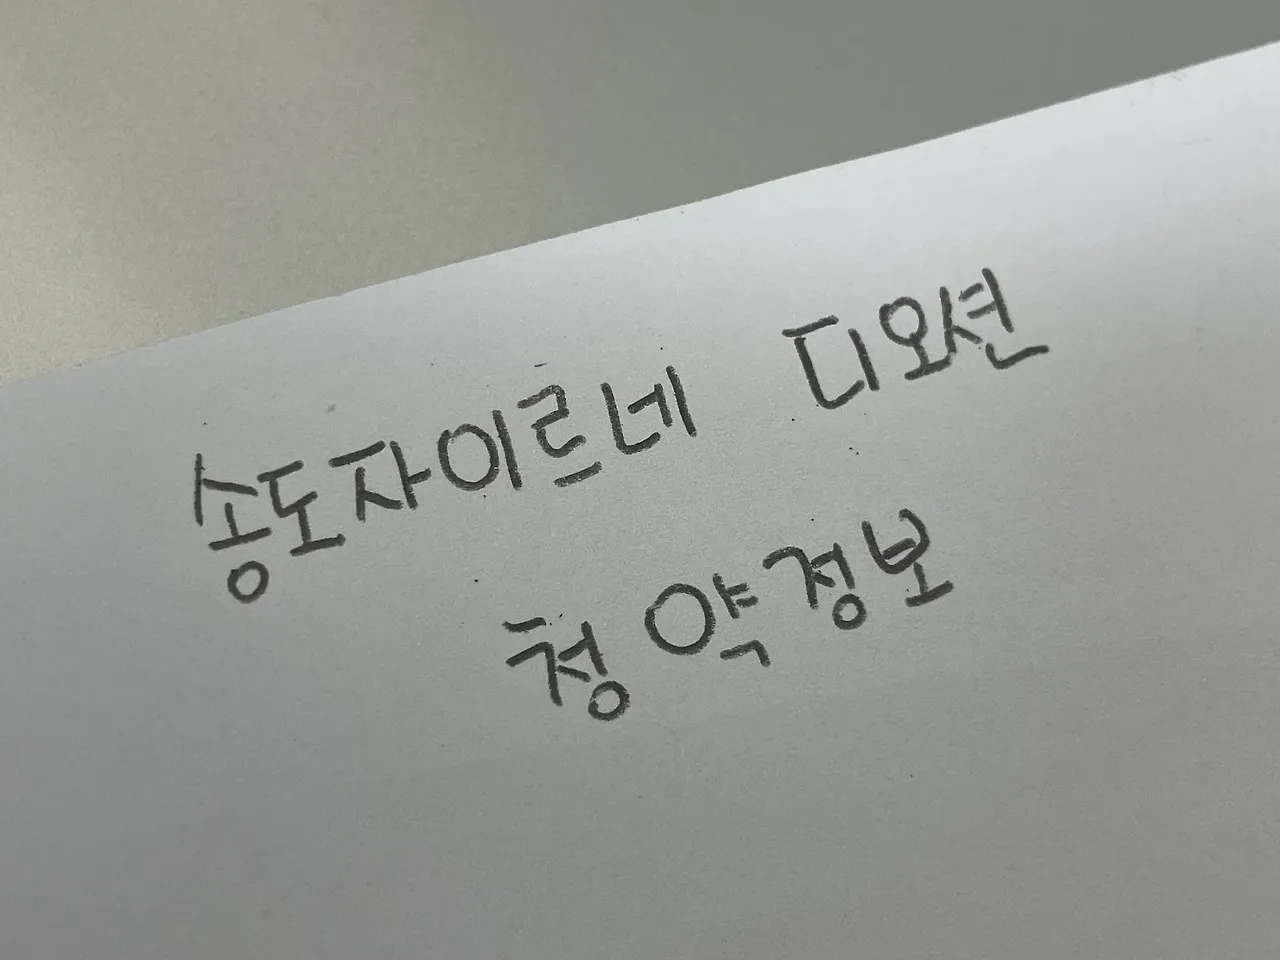 송도자이르네 디오션
청약정보